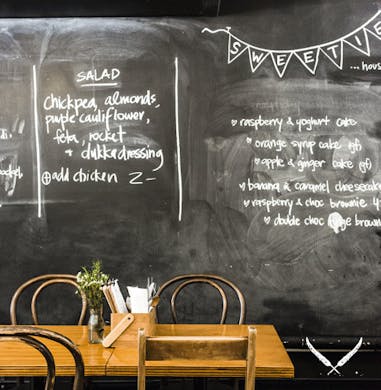 SALAD
chickpea, almonds,
purple cauliflower,
feta, rocket
+ dukka dressing
⊕ add chicken 2-
SWEETIE
... hous
♥ raspberry & yoghurt cake
♥ orange syrup cake (gf)
♥ apple & ginger cake (gf)
♥ banana & caramel cheesecake
♥ raspberry & choc brownie 4
♥ double choc brown